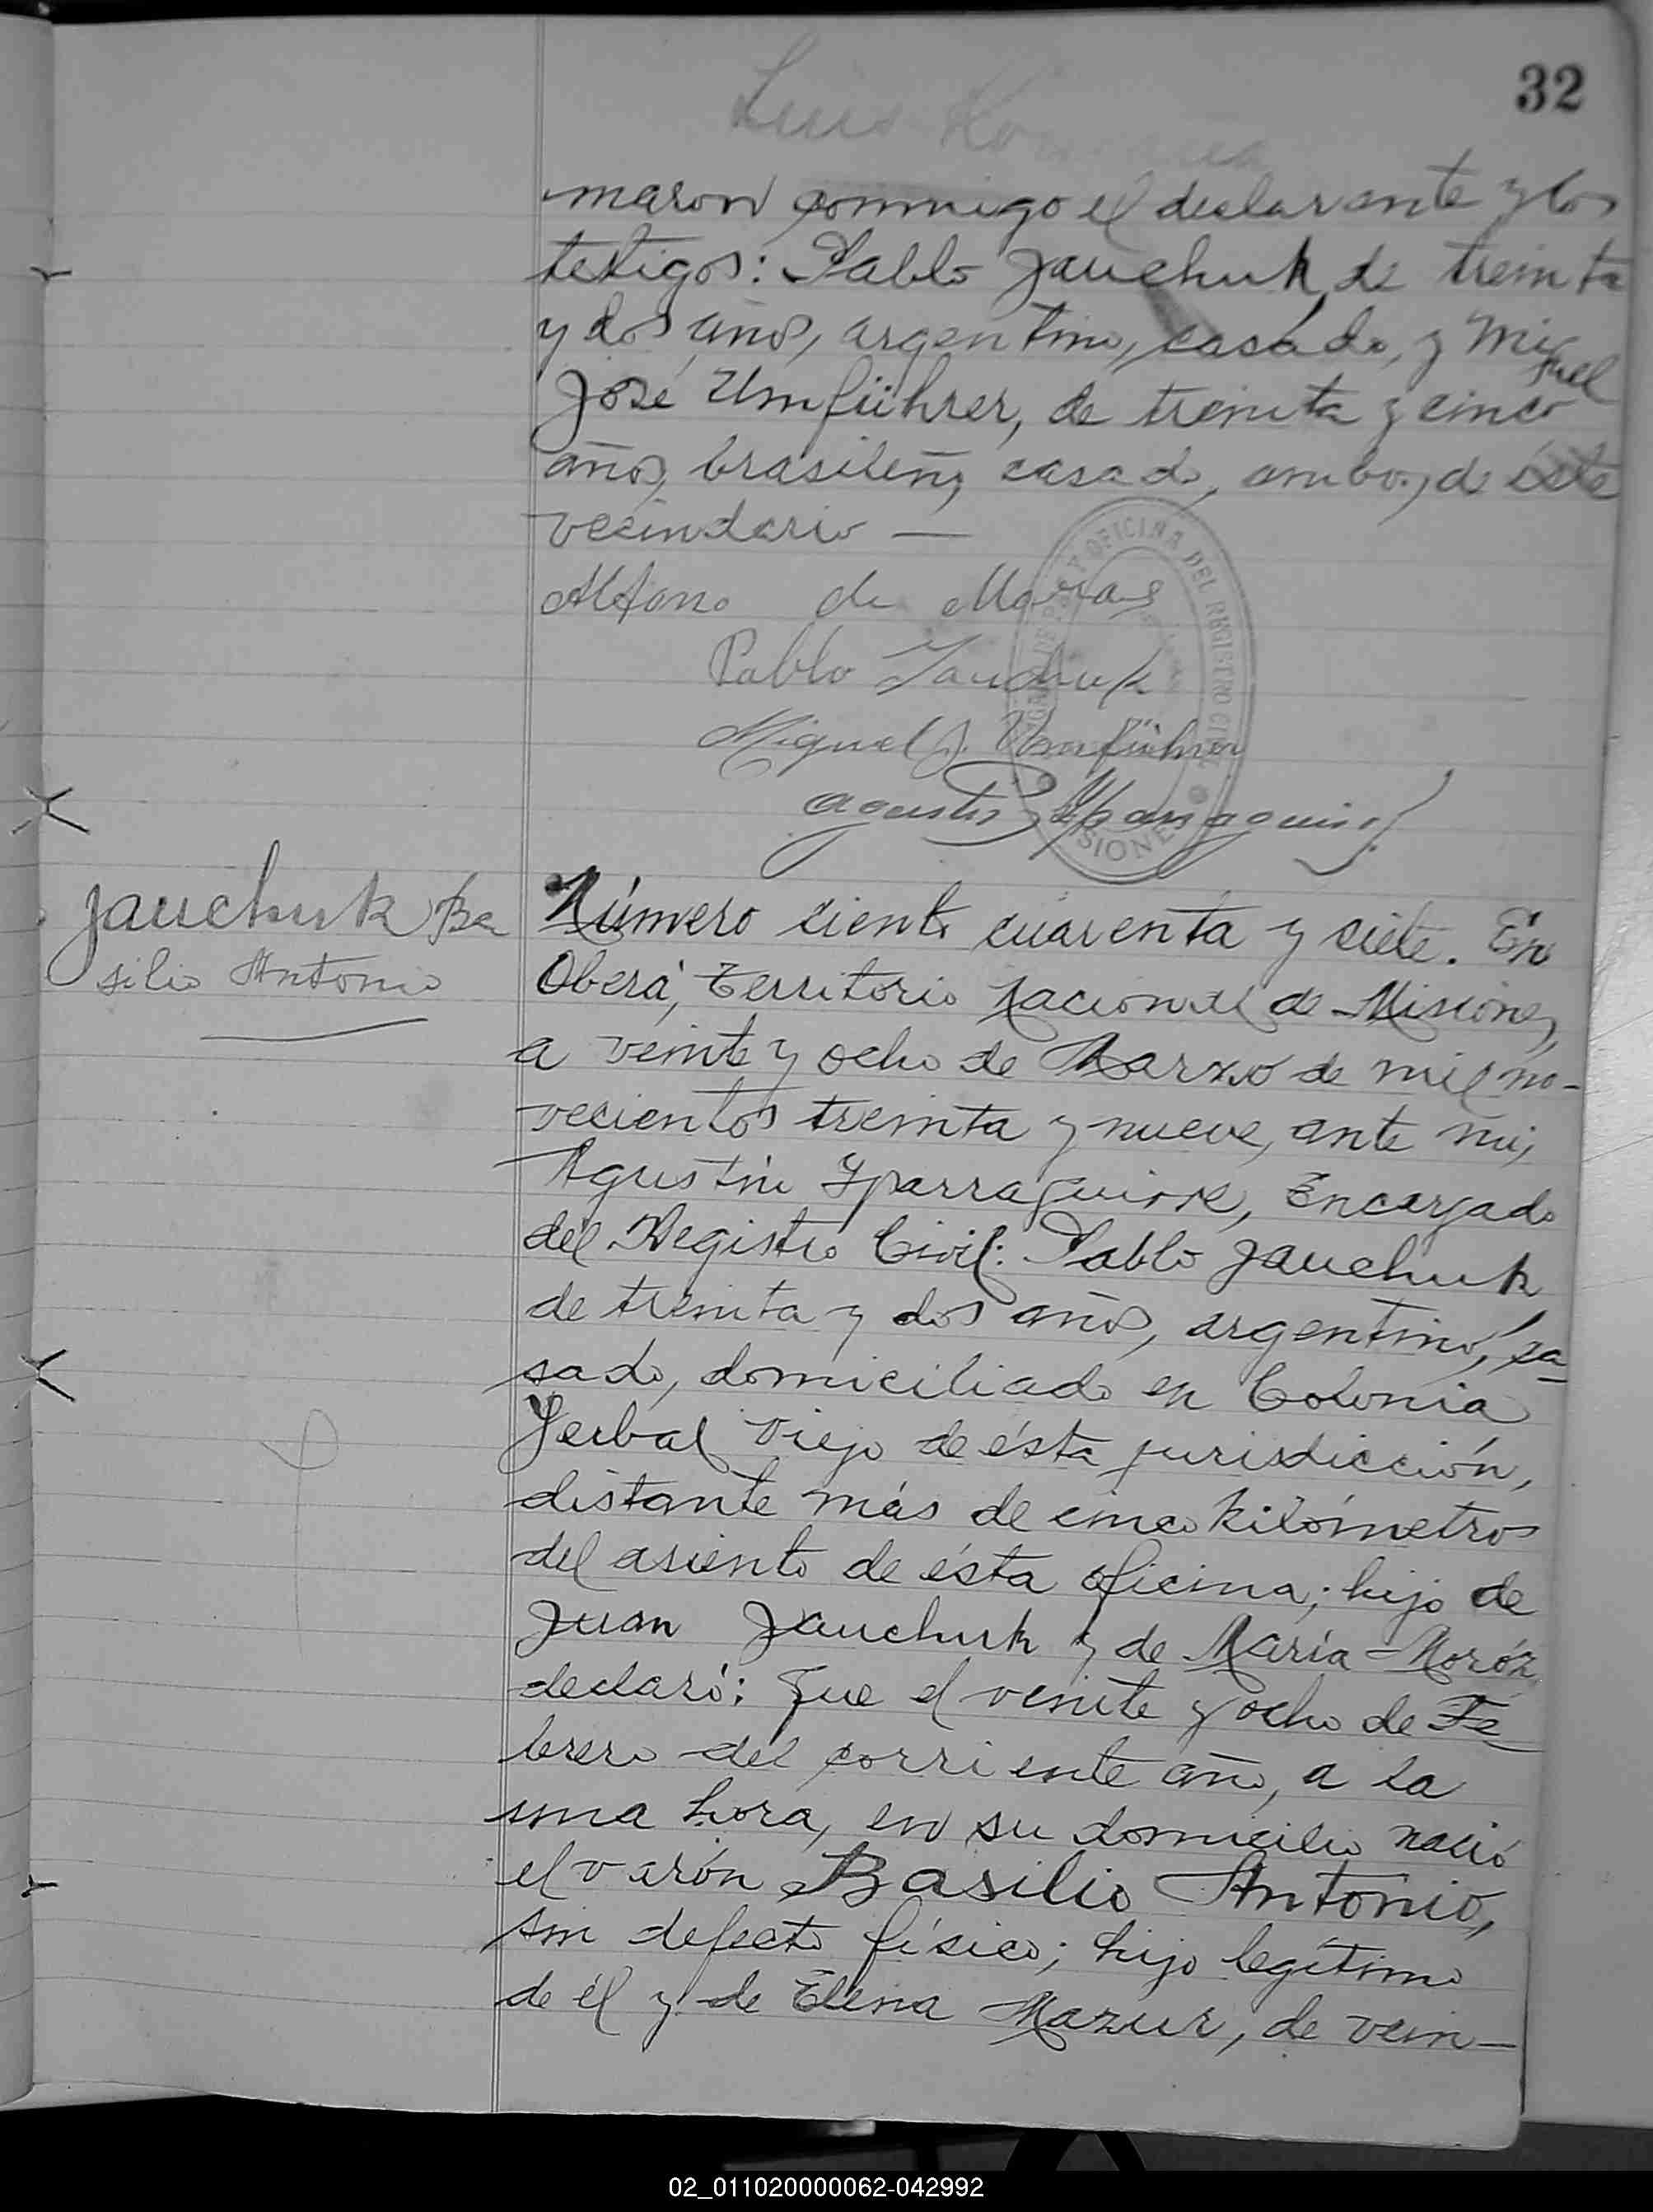 32
Luis
maron conmigo el declarante y los
testigos: Pablo Jauchuk, de treinta
y dos años, argentino, casado, y Miguel
José Umführer, de treinta y cinco
años, brasileño, casado, ambos de éste
vecindario —
OFICINA DEL REGISTRO CIVIL
Alfono de Moras
Pablo Jauchuk
Miguel J. Umführer
Agustín Yparraguirre
SIONES
Jauchuk Ba
silio Antonio
Número ciento cuarenta y siete. En
Oberá, Territorio Nacional de Misiones,
a veinte y ocho de Marzo de mil no-
vecientos treinta y nueve, ante mi,
Agustín Yparraguirre, Encargado
del Registro Civil: Pablo Jauchuk
de treinta y dos años, argentino, ca-
sado, domiciliado en Colonia
Yerbal Viejo de ésta jurisdicción,
distante más de cinco kilómetros
del asiento de ésta oficina; hijo de
Juan Jauchuk y de María Moróz
declaró: Que el veinte y ocho de Fe-
brero del corriente año, a la
una hora, en su domicilio nació
el varón Basilio Antonio,
sin defecto físico; hijo legítimo
de él y de Elena Mazur, de vein-
02_011020000062-042992